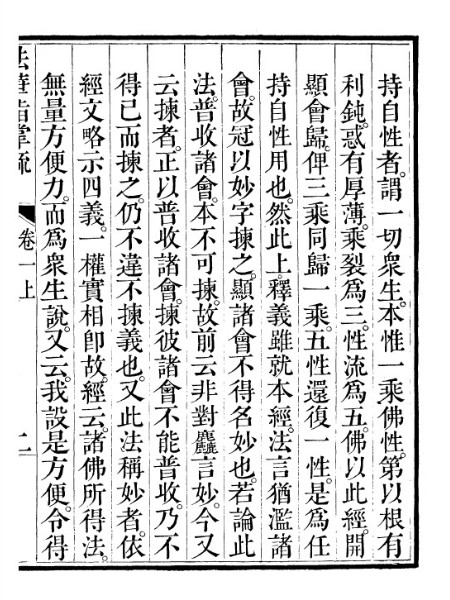 持自性者。謂一切衆生。本惟一乘佛性。第以根有
利鈍。惑有厚薄。乘裂爲三。性流爲五。佛以此經。開
顯會歸。俾三乘同歸一乘。五性還復一性。是爲任
持自性用也。然此上釋義雖就本經。法言猶濫諸
會。故冠以妙字揀之。顯諸會不得名妙也。若論此
法。普收諸會。本不可揀。故前云非對麤言妙。今又
云揀者。正以普收諸會。揀彼諸會不能普收。乃不
得已而揀之。仍不違不揀義也。又此法稱妙者。依
經文略示四義。一權實相卽故。經云。諸佛所得法。
無量方便力。而爲衆生說。又云。我設是方便。令得
法華指掌疏 卷一上 二